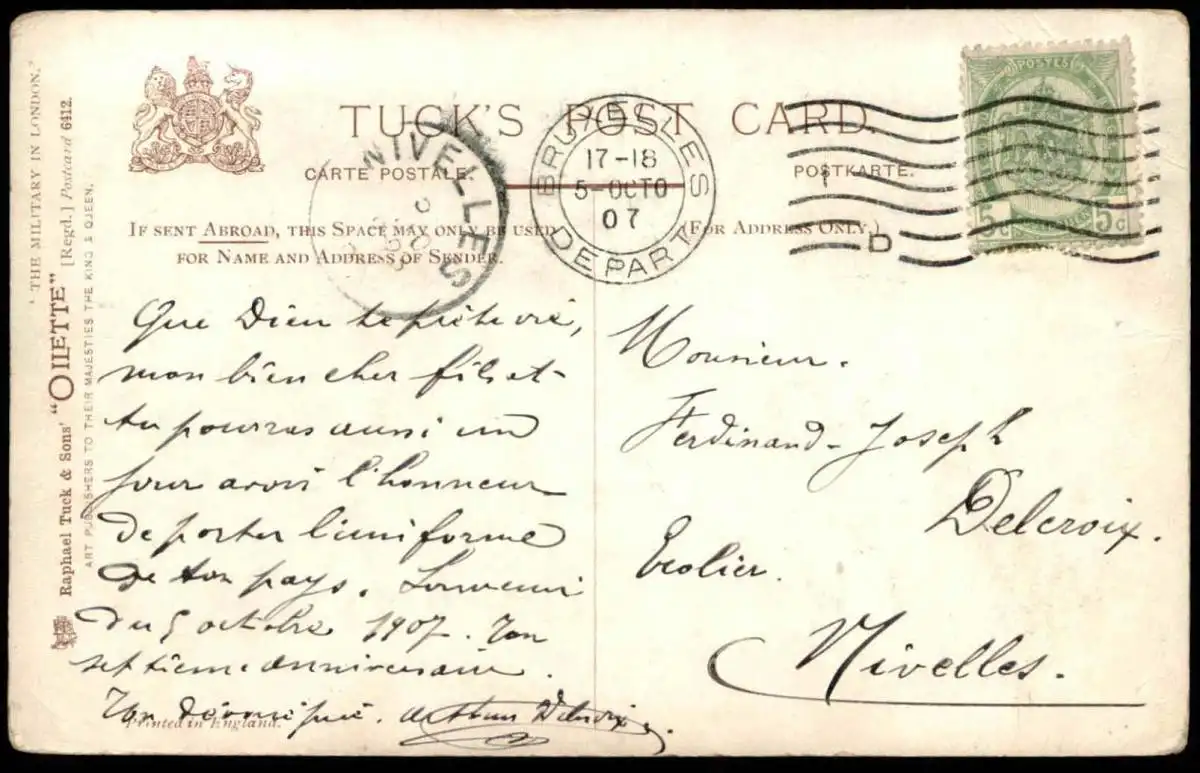 "THE MILITARY IN LONDON."
Raphael Tuck & Sons' "OILETTE" [Regd.] Postcard 6412.
ART PUBLISHERS TO THEIR MAJESTIES THE KING & QUEEN.
TUCK'S POST CARD.
CARTE POSTALE.
POSTKARTE.
IF SENT ABROAD, THIS SPACE MAY ONLY BE USED
FOR NAME AND ADDRESS OF SENDER.
(FOR ADDRESS ONLY.)
NIVELLES
BRUXELLES
17-18
5-OCTO
07
DEPART
D
POSTES
5c 5c
Que Dieu te prête vie,
mon bien cher fils et
tu pourras aussi un
jour avoir l'honneur
de porter l'uniforme
de ton pays. Souvenir
du 5 octobre 1907. Ton
septième anniversaire.
Ton
Delcroix.
Printed in England.
Monsieur.
Ferdinand-Joseph
Delcroix.
Ecolier.
Nivelles.